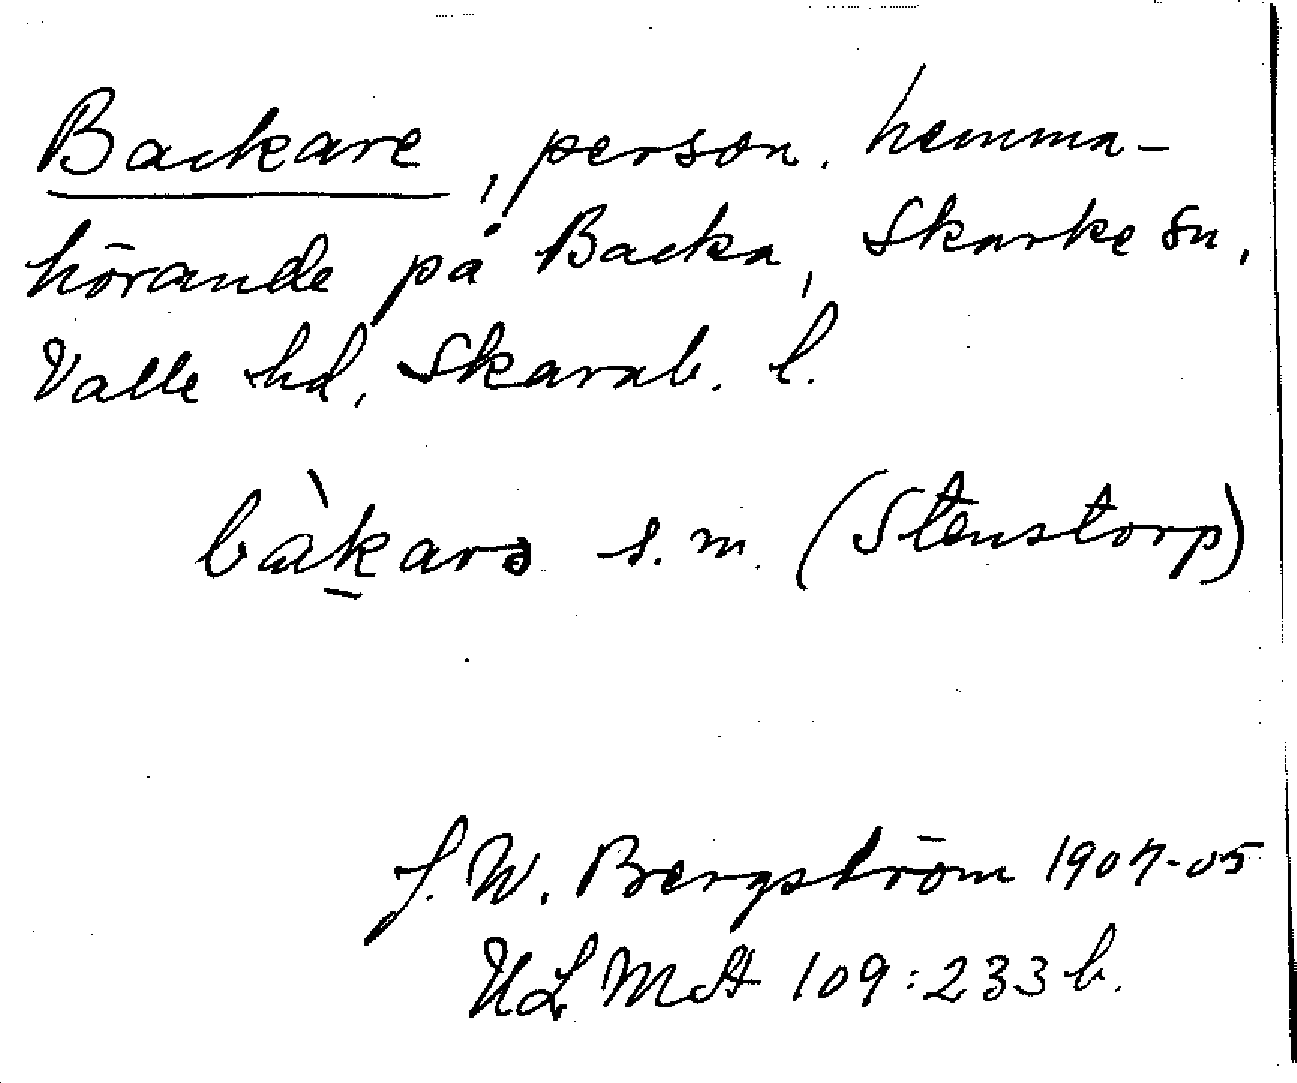 Backare, person. hemma-
hörande på Backa, Skarke sn,
Valle hd, Skarab. l.
bàkarə s. m. (Stenstorp)
J. W. Bergström 1904-05
ULMA 109:233 b.